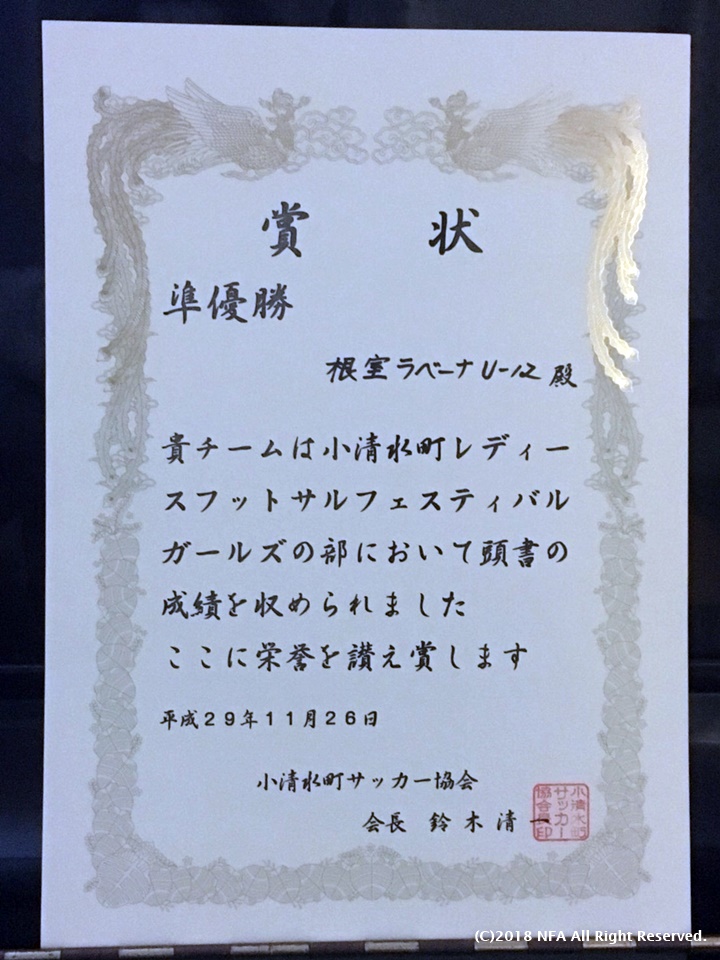 賞状
準優勝
根室ラベーナU-12 殿
貴チームは小清水町レディー
スフットサルフェスティバル
ガールズの部において頭書の
成績を収められました
ここに栄誉を讃え賞します
平成29年11月26日
小清水町サッカー協会
会長 鈴木清一
小清水町
サッカー
協会長印
(C)2018 NFA All Right Reserved.